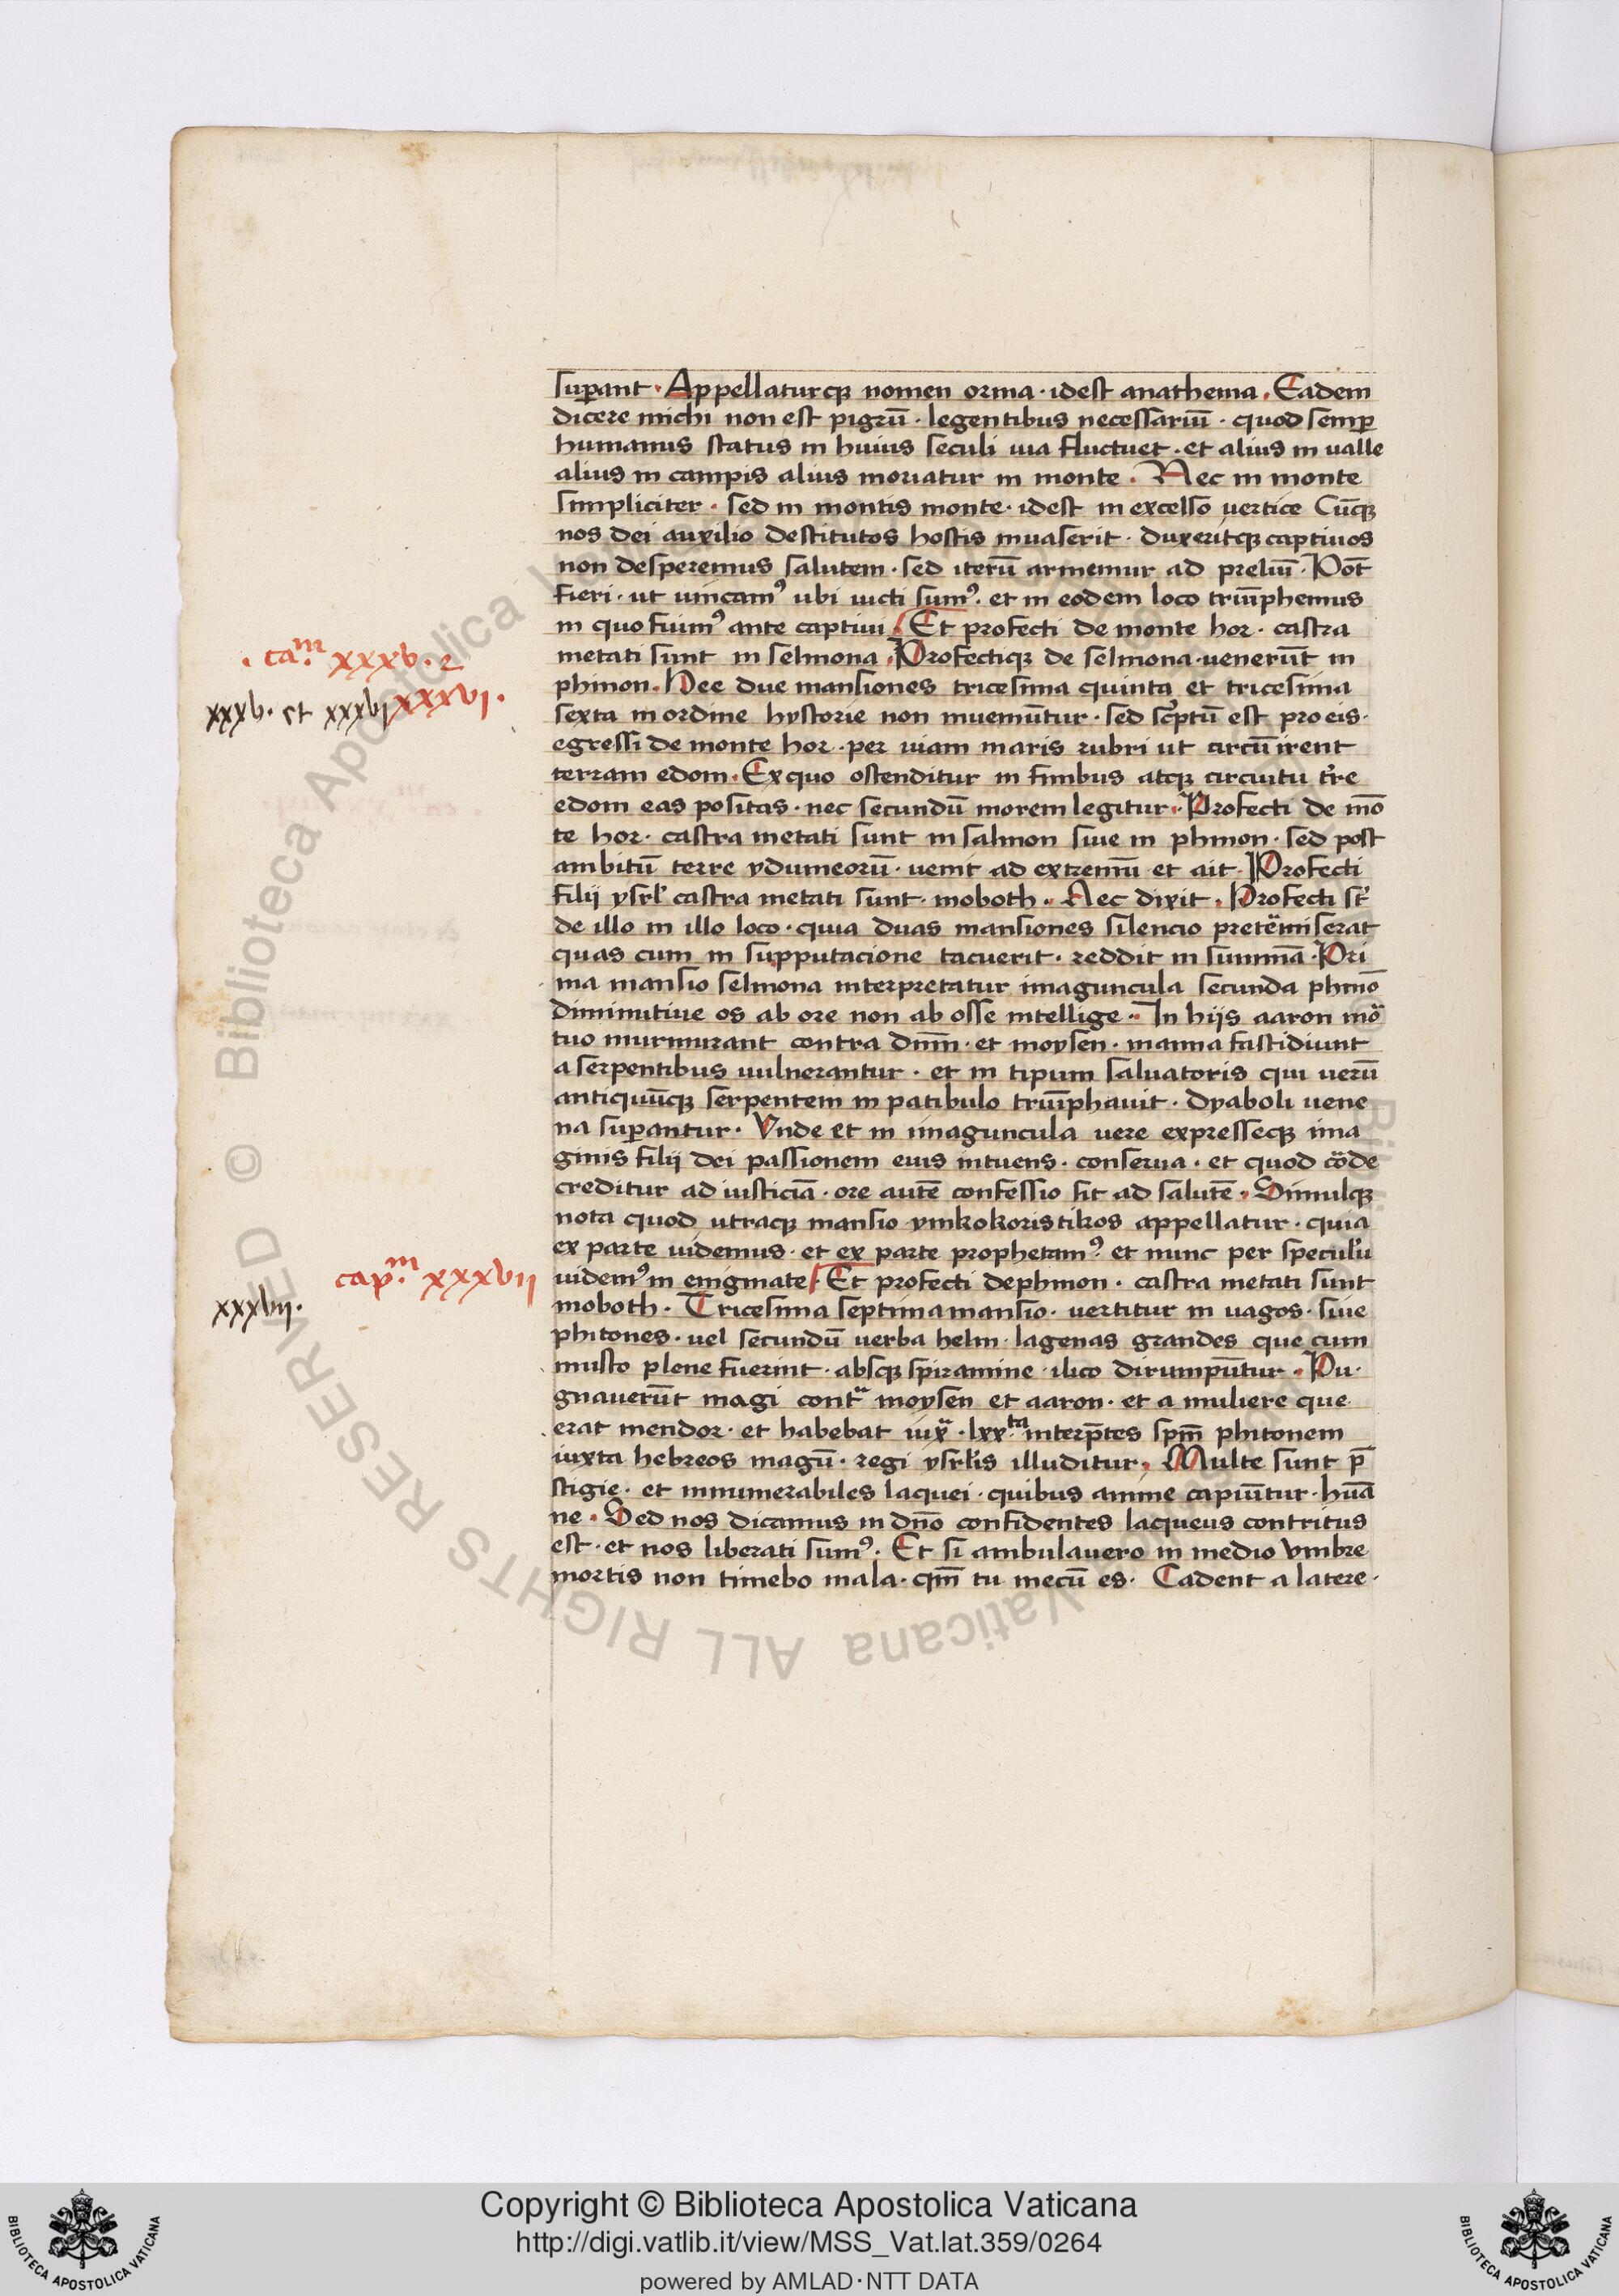 sup̄ant · Appellaturq̄ꝫ nomen orma · idest anathema . Eadem
dicere michi non est pigrū · legentibus necessariū · quod semꝑ
humanus status in huius seculi uia fluctuet · et alius in ualle
alius in campis alius moriatur in monte . Nec in monte
simpliciter · sed in montis monte · idest in excelso uertice Cūqꝫ
nos dei auxilio destitutos hostis inuaserit · duxeritqꝫ captiuos
non desperemus salutem · sed iterū armemur ad preliū · Pōt
fieri · ut uincamꝰ ubi uicti sumꝰ · et in eodem loco triūphemus
in quo fuimꝰ ante captiui Et profecti de monte hor · castra
metati sunt in selmona . Profectiqꝫ de selmona · uenerūt in
phinon . Hee due mansiones tricesima quinta et tricesima
sexta in ordine hystorie non inueniūtur · sed sc̓ptū est pro eis ·
egressi de monte hor · per uiam maris rubri ut circūirent
terram edom . Ex quo ostenditur in finibus atqꝫ circuitu tr̄e
edom eas positas · nec secundū morem legitur . Profecti de mō
te hor · castra metati sunt in salmon siue in phinon · sed post
ambitū terre ydumeorū · uenit ad extremū et ait · Profecti
filij ysrl̓ castra metati sunt · moboth . Nec dixit . Profecti st̄
de illo in illo loco · quia duas mansiones silencio pretermiserat
quas cum in supputacione tacuerit · reddit in summā · Pri
ma mansio selmona interpretatur imaguncula secunda phinō
diminutiue os ab ore non ab osse intellige . In hijs aaron mor
tuo murmurant contra dn̄m · et moysen · manna fastidiunt
a serpentibus uulnerantur · et in tipum saluatoris qui uerū
antiquūqꝫ serpentem in patibulo triūphauit · dyaboli uene
na sup̄antur · Vnde et in imaguncula uere expresseqꝫ ima
ginis filij dei passionem eius intuens · conserua · et quod corde
creditur ad iusticiā · ore autē confessio fit ad salutē . Simulqꝫ
nota quod utraqꝫ mansio ymkokoristikos appellatur · quia
ex parte uidemus · et ex parte prophetamꝰ · et nunc per speculū
uidemꝰ in enigmate Et profecti de phinon · castra metati sunt
moboth . Tricesima septima mansio · uertitur in uagos · siue
phitones · uel secundū uerba helm · lagenas grandes que cum
musto plene fuerint · absqꝫ spiramine · ilico dirumpūtur . Pu ·
gnauerūt magi contra moysen et aaron · et a muliere que
erat mendor · et habebat iuxa · lxx.ta interp̄tes sp̄m phitonem
iuxta hebreos magū · regi ysrl̓is illuditur . Multe sunt p̄
stigie · et innumerabiles laquei · quibus anime capiūtur · huā
ne . Sed nos dicamus in dn̄o confidentes laqueus contritus
est · et nos liberati sumꝰ · Et si ambulauero in medio vmbre
mortis non timebo mala · qm̄ tu mecū es · Cadent a latere ·
· ca.m xxxv · 2
xxxvi ·
xxxv. et xxxvi
cap.m xxxvii
xxxvii.
© Biblioteca Apostolica Vaticana ALL RIGHTS RESERVED
Copyright © Biblioteca Apostolica Vaticana
http://digi.vatlib.it/view/MSS_Vat.lat.359/0264
powered by AMLAD·NTT DATA
BIBLIOTECA APOSTOLICA VATICANA
BIBLIOTECA APOSTOLICA VATICANA